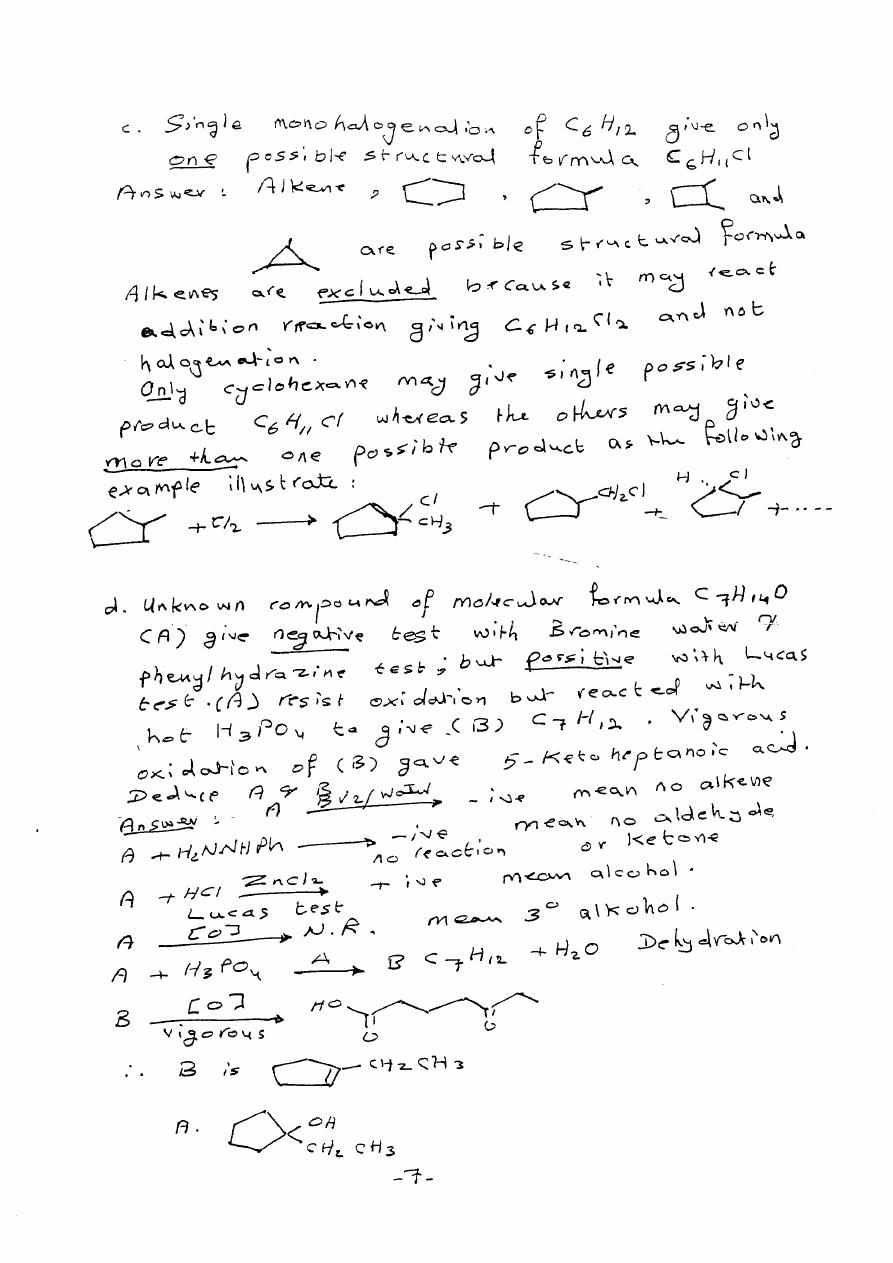 c. Single monohalogenation of C6H12 give only
one possible structural formula C6H11Cl
Answer : Alkene , , , and
are possible structural formula
Alkenes are excluded because it may react
addition reaction giving C6H12Cl2 and not
halogenation.
Only cyclohexane may give single possible
product C6H11Cl whereas the others may give
more than one possible product as the following
example illustrate :
+ Cl2 → Cl CH3 + CH2Cl + H Cl + ....
d. Unknown compound of molecular formula C7H14O
(A) give negative test with Bromine water &
phenylhydrazine test ; but possitive with Lucas
test. (A) resist oxidation but reacted with
hot H3PO4 to give (B) C7H12. Vigorous
oxidation of (B) gave 5-Ketoheptanoic acid.
Deduce A & B
Answer : A Br2/water → -ive mean no alkene
A + H2NNHPh → -ive no reaction mean no aldehyde or ketone
A + HCl ZnCl2 → + ive mean alcohol.
Lucas test
A [O] → N.R. mean 3° alkohol.
A + H3PO4 Δ → B C7H12 + H2O Dehydration
B [O] vigorous → HO O O
∴ B is CH2CH3
A. OH
CH2CH3
-7-